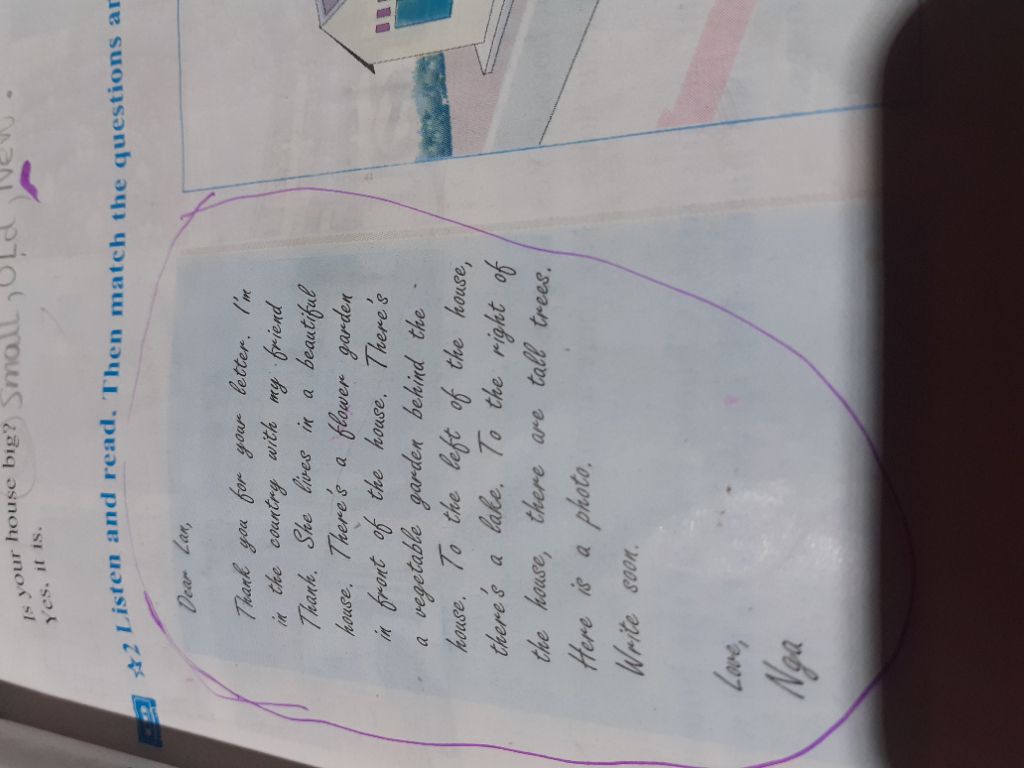 Is your house big? Small, Old, New.
Yes, it is.
☆2 Listen and read. Then match the questions
Dear Lan,
Thank you for your letter. I'm
in the country with my friend
Thanh. She lives in a beautiful
house. There's a flower garden
in front of the house. There's
a vegetable garden behind the
house. To the left of the house,
there's a lake. To the right of
the house, there are tall trees.
Here is a photo.
Write soon.
Love,
Nga